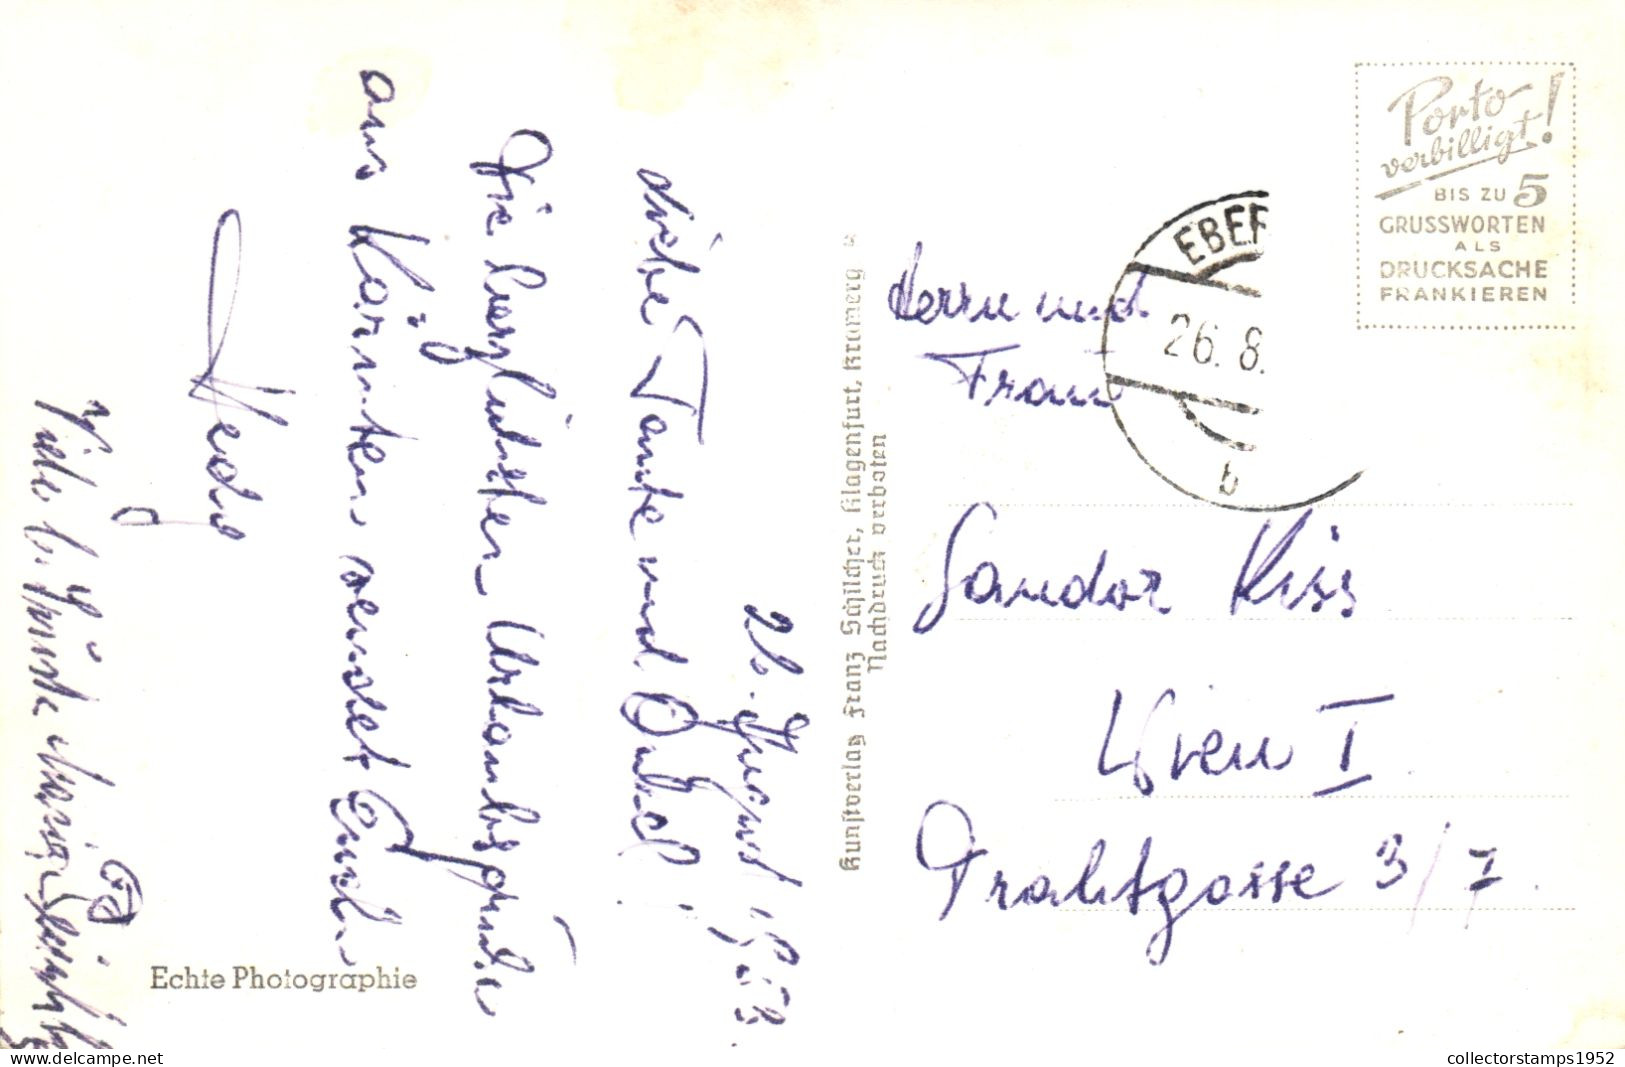 26. August
Liebe Tante und Onkel!
Die herzlichsten Urlaubsgrüße
aus Kärnten sendet Euch
Hedy
Viele b. Grüße Maria
Echte Photographie
Kunstverlag Franz Schilcher, Klagenfurt, Kramerg
Nachdruck verboten
Porto
verbilligt!
BIS ZU 5
GRUSSWORTEN
ALS
DRUCKSACHE
FRANKIEREN
EBER
26. 8.
b
Herrn und
Frau
Sandor Kiss
Wien I
Drahtgasse 3/7.
collectorstamps1952